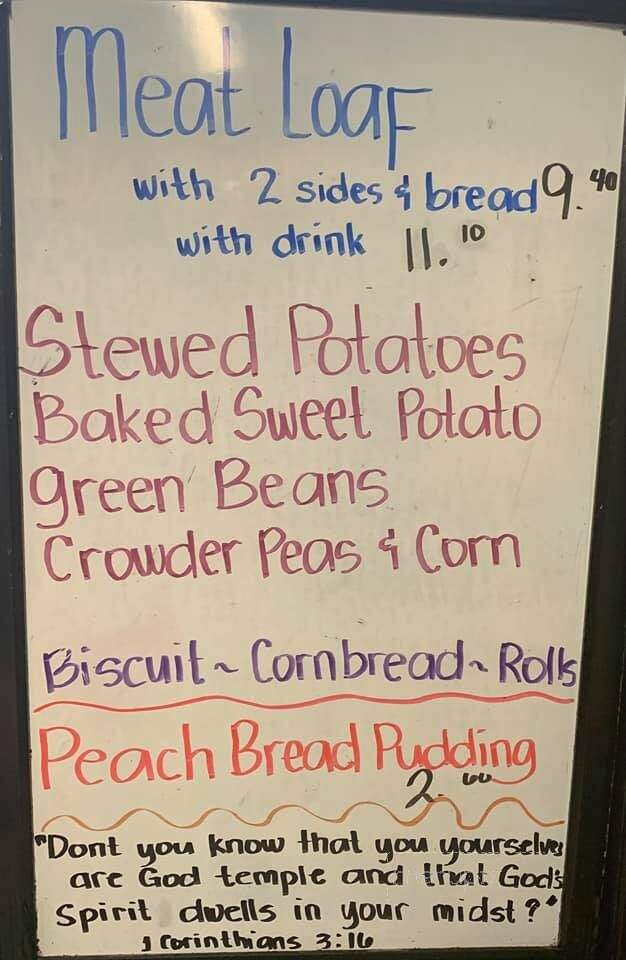 Meat Loaf
with 2 sides & bread 9.40
with drink 11.10
Stewed Potatoes
Baked Sweet Potato
green Beans
Crowder Peas & Corn
Biscuit ~ Cornbread ~ Rolls
Peach Bread Pudding
2.00
"Dont you know that you yourselves
are God temple and that God's
Spirit dwells in your midst?"
1 Corinthians 3:16